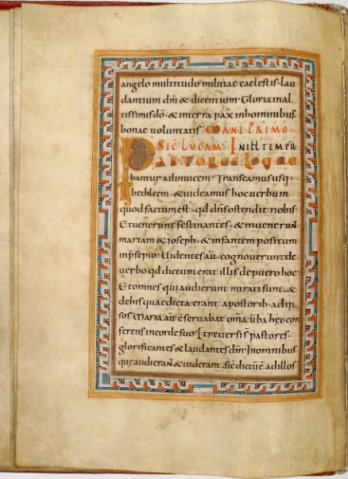 angelo multitudo militiae caelestis · lau
dantium dm̄ & dicentium · Gloria in al
tissimis dō · & in terra pax in hominibus
bonae voluntatis · MANE PRIMO ·
SEC LUCAM · IN ILL TEMPR
PASTORES LOQUE
bantur ad invicem · Transeamus usq·
bethleem · & videamus hoc verbum
quod factum est · qd dn̄s ostendit nobis·
Et venerunt festinantes · & invenerun̄
mariam & ioseph · & infantem positum
in p̄sepio· Videntes au̅ · cognoverunt de
verbo qd dictum erat illis de puero hoc·
Et omnes qui audierunt mirati sunt · &
de his quae dicta erant a pastorib· ad ip
sos· Maria au̅ c̄servabat om̄a v̄ba hęc con
ferens in corde suo· Et reversi s̄ pastores ·
glorificantes & laudantes dm̄ · In omnibus
quę audieran̄ & viderant · sic dictū ē ad illos